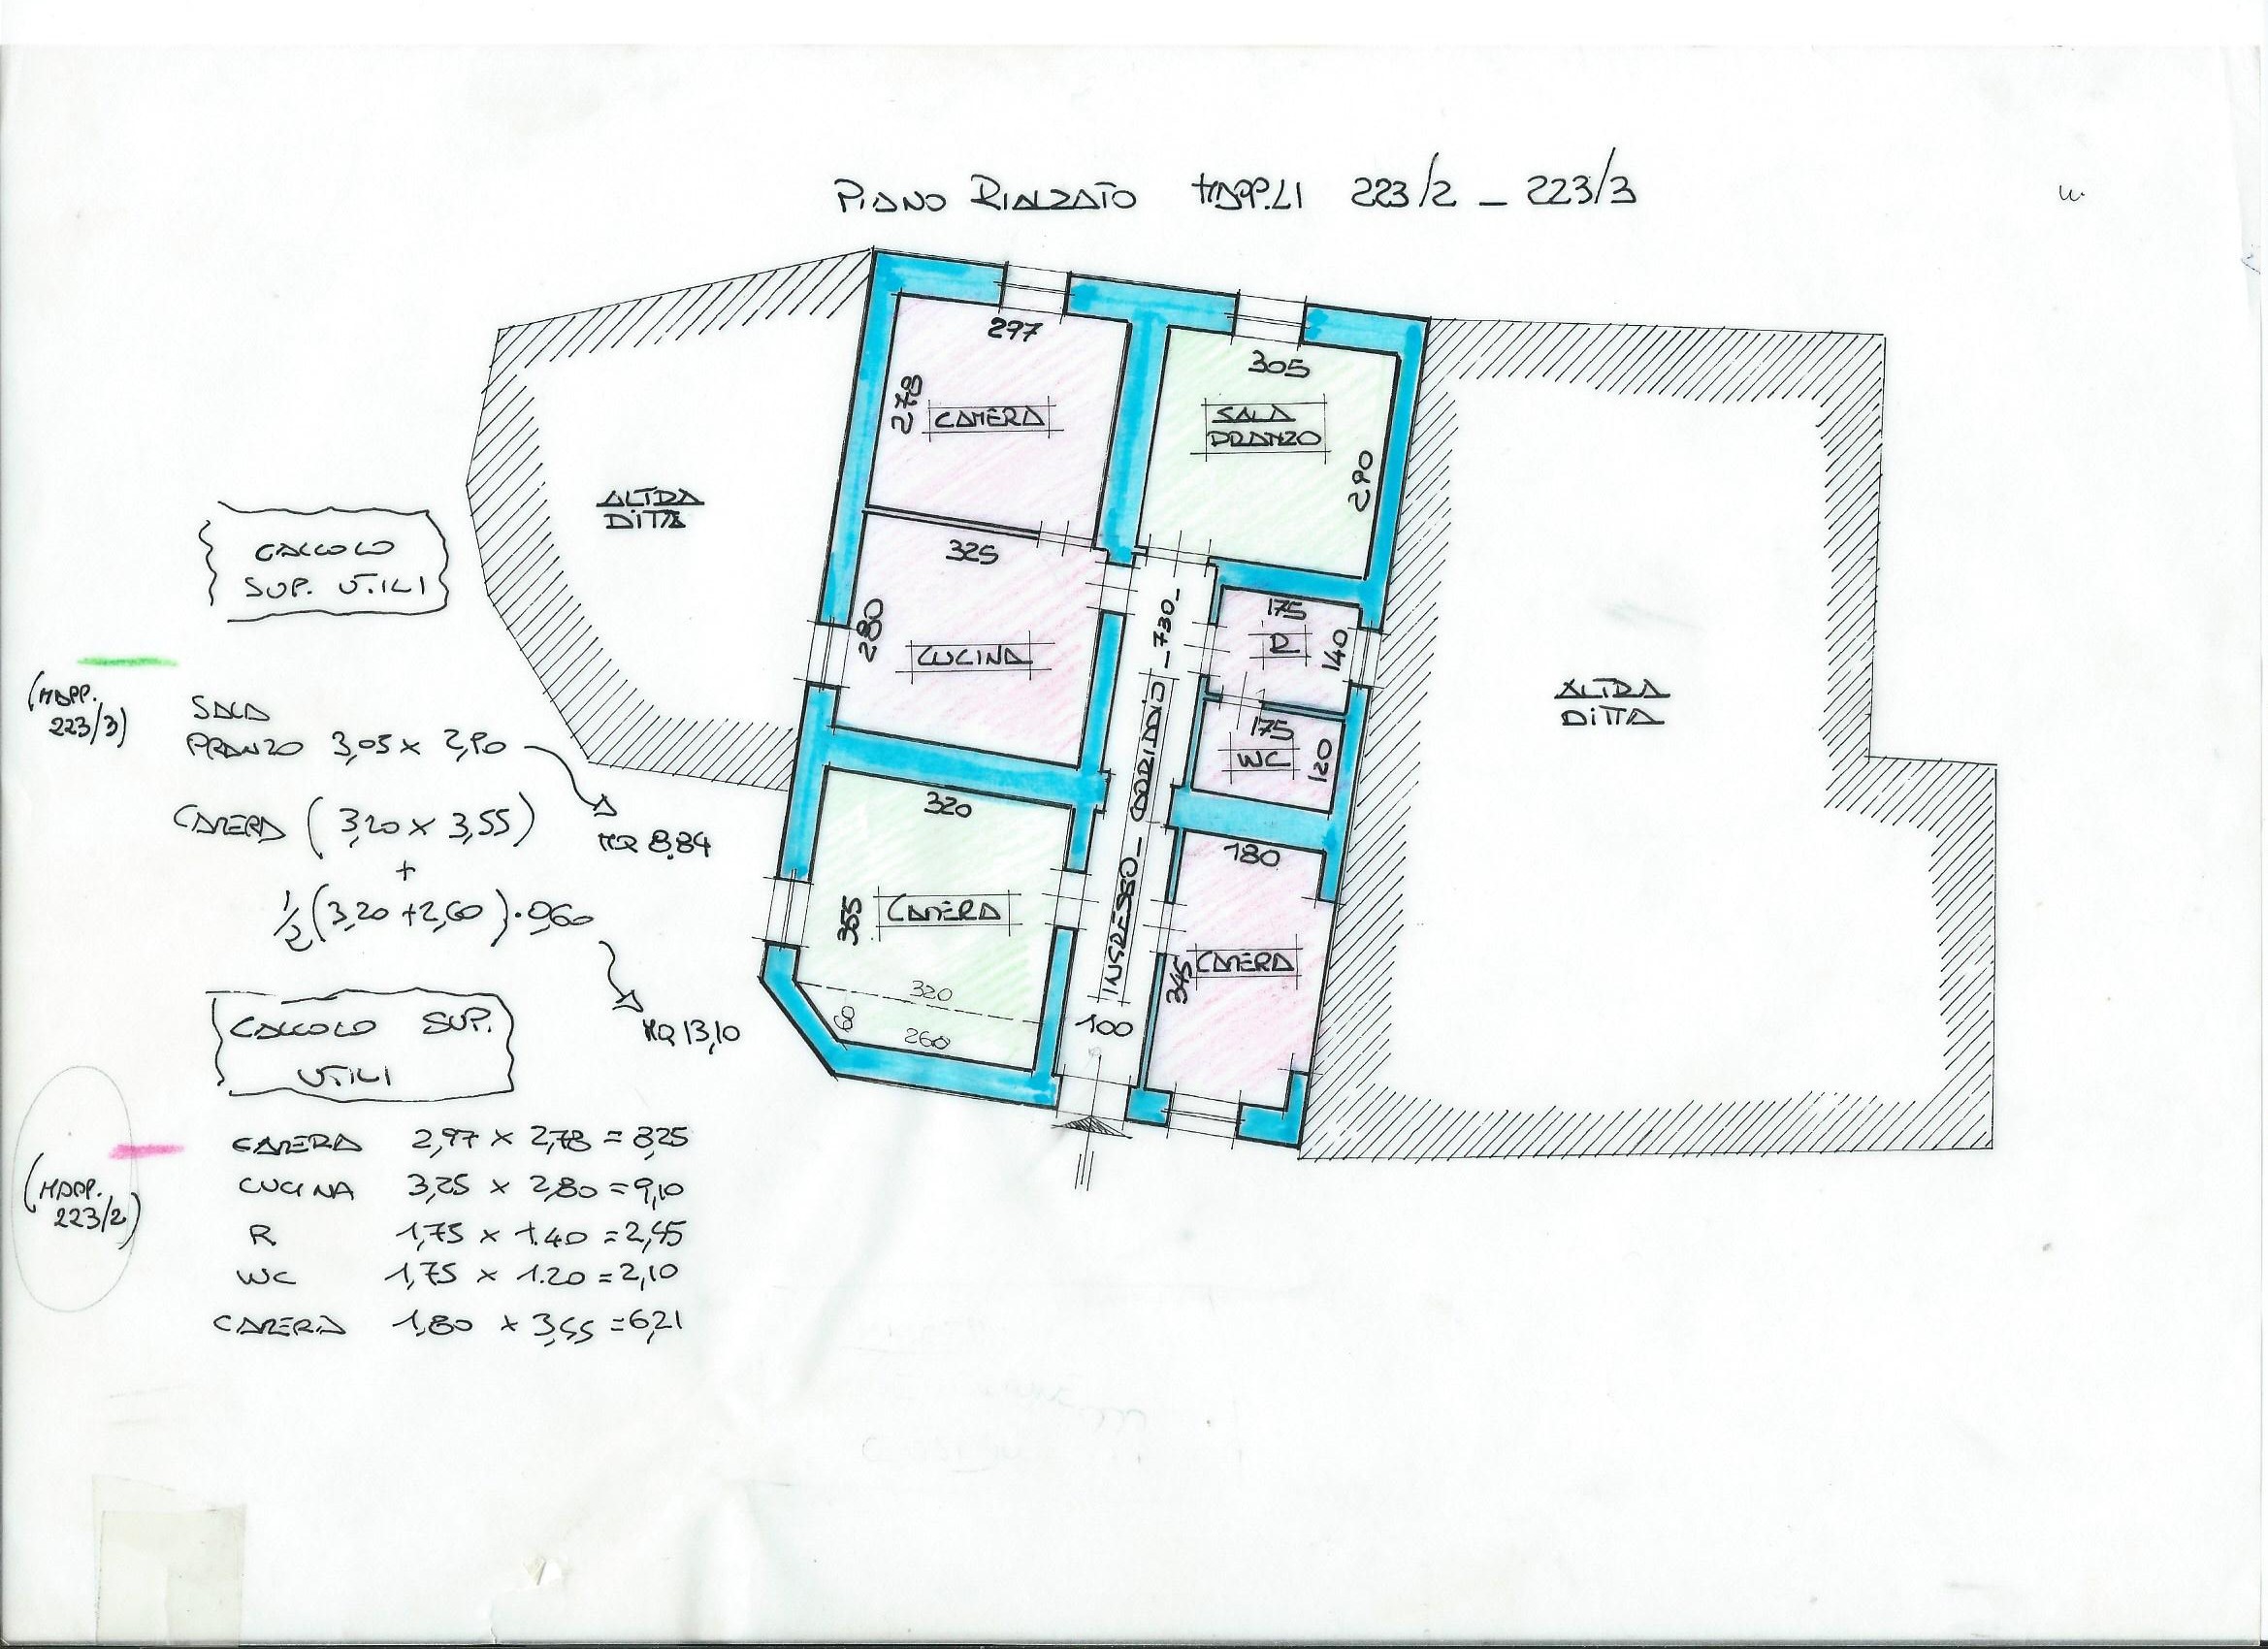 PIANO RIALZATO MAPP.LI 223/2 - 223/3
297
278
CAMERA
305
SALA
PRANZO
290
ALTRA
DITTA
325
280
CUCINA
175
R
140
175
WC
120
ALTRA
DITTA
INGRESSO - CORRIDOIO - 730 -
320
355
CAMERA
320
60
260
180
345
CAMERA
100
CALCOLO
SUP. UTILI
(MAPP.
223/3)
SALA
PRANZO 3,05 x 2,90
MQ 8,84
CAMERA (3,20 x 3,55)
+
1/2 (3,20 + 2,60) · 0,60
MQ 13,10
CALCOLO SUP.
UTILI
(MAPP.
223/2)
CAMERA 2,97 x 2,78 = 8,25
CUCINA 3,25 x 2,80 = 9,10
R 1,75 x 1.40 = 2,45
WC 1,75 x 1.20 = 2,10
CAMERA 1,80 x 3,45 = 6,21